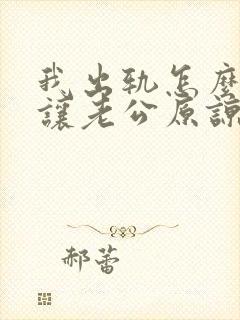 我出轨怎麼
讓老公原諒
郝蕾